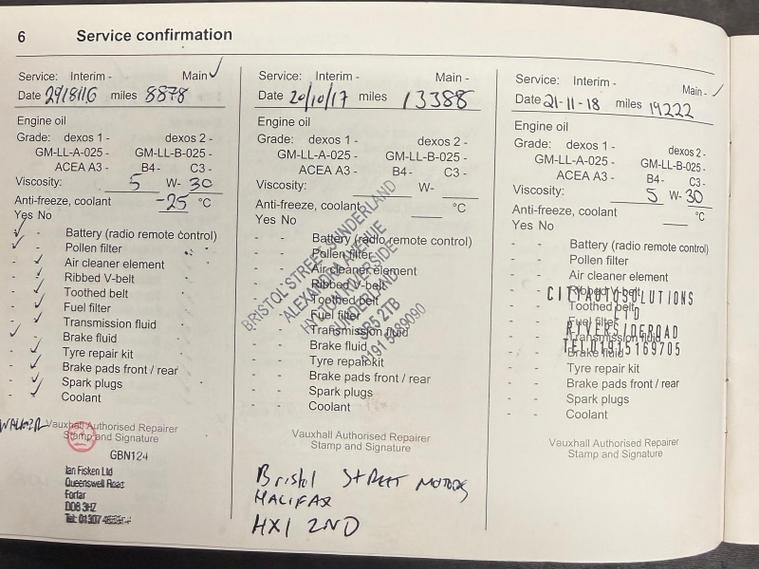 6 Service confirmation
Service: Interim - Main - ✓
Date 29/8/16 miles 8878
Engine oil
Grade: dexos 1 - dexos 2 -
GM-LL-A-025 - GM-LL-B-025 -
ACEA A3 - B4- C3 -
Viscosity: 5 W- 30
Anti-freeze, coolant -25 °C
Yes No
Battery (radio remote control)
Pollen filter
Air cleaner element
Ribbed V-belt
Toothed belt
Fuel filter
Transmission fluid
Brake fluid
Tyre repair kit
Brake pads front / rear
Spark plugs
Coolant
Vauxhall Authorised Repairer
Stamp and Signature
GBN124
Ian Fisken Ltd
Queenswell Road
Forfar
DD8 3HZ
Tel: 01307
Service: Interim - Main -
Date 20/10/17 miles 13388
Engine oil
Grade: dexos 1 - dexos 2 -
GM-LL-A-025 - GM-LL-B-025 -
ACEA A3 - B4- C3 -
Viscosity: W-
Anti-freeze, coolant °C
Yes No
- - Battery (radio remote control)
- - Pollen filter
- - Air cleaner element
- - Ribbed V-belt
- - Toothed belt
- - Fuel filter
- - Transmission fluid
- - Brake fluid
- - Tyre repair kit
- - Brake pads front / rear
- - Spark plugs
- - Coolant
BRISTOL STREET SUNDERLAND
ALEXANDRA AVENUE
HYLTON RIVERSIDE
SUNDERLAND
SR5 2TB
0191 5889090
Vauxhall Authorised Repairer
Stamp and Signature
Bristol STREET MOTORS
HALIFAX
HX1 2ND
Service: Interim - Main - ✓
Date 21-11-18 miles 19222
Engine oil
Grade: dexos 1 - dexos 2 -
GM-LL-A-025 - GM-LL-B-025 -
ACEA A3 - B4- C3 -
Viscosity: 5 W- 30
Anti-freeze, coolant °C
Yes No
- - Battery (radio remote control)
- - Pollen filter
- - Air cleaner element
- - Ribbed V-belt
- - Toothed belt
- - Fuel filter
- - Transmission fluid
- - Brake fluid
- - Tyre repair kit
- - Brake pads front / rear
- - Spark plugs
- - Coolant
CITYAUTOSOLUTIONS
LTD
RIVERSIDEROAD
TEL01915169705
Vauxhall Authorised Repairer
Stamp and Signature